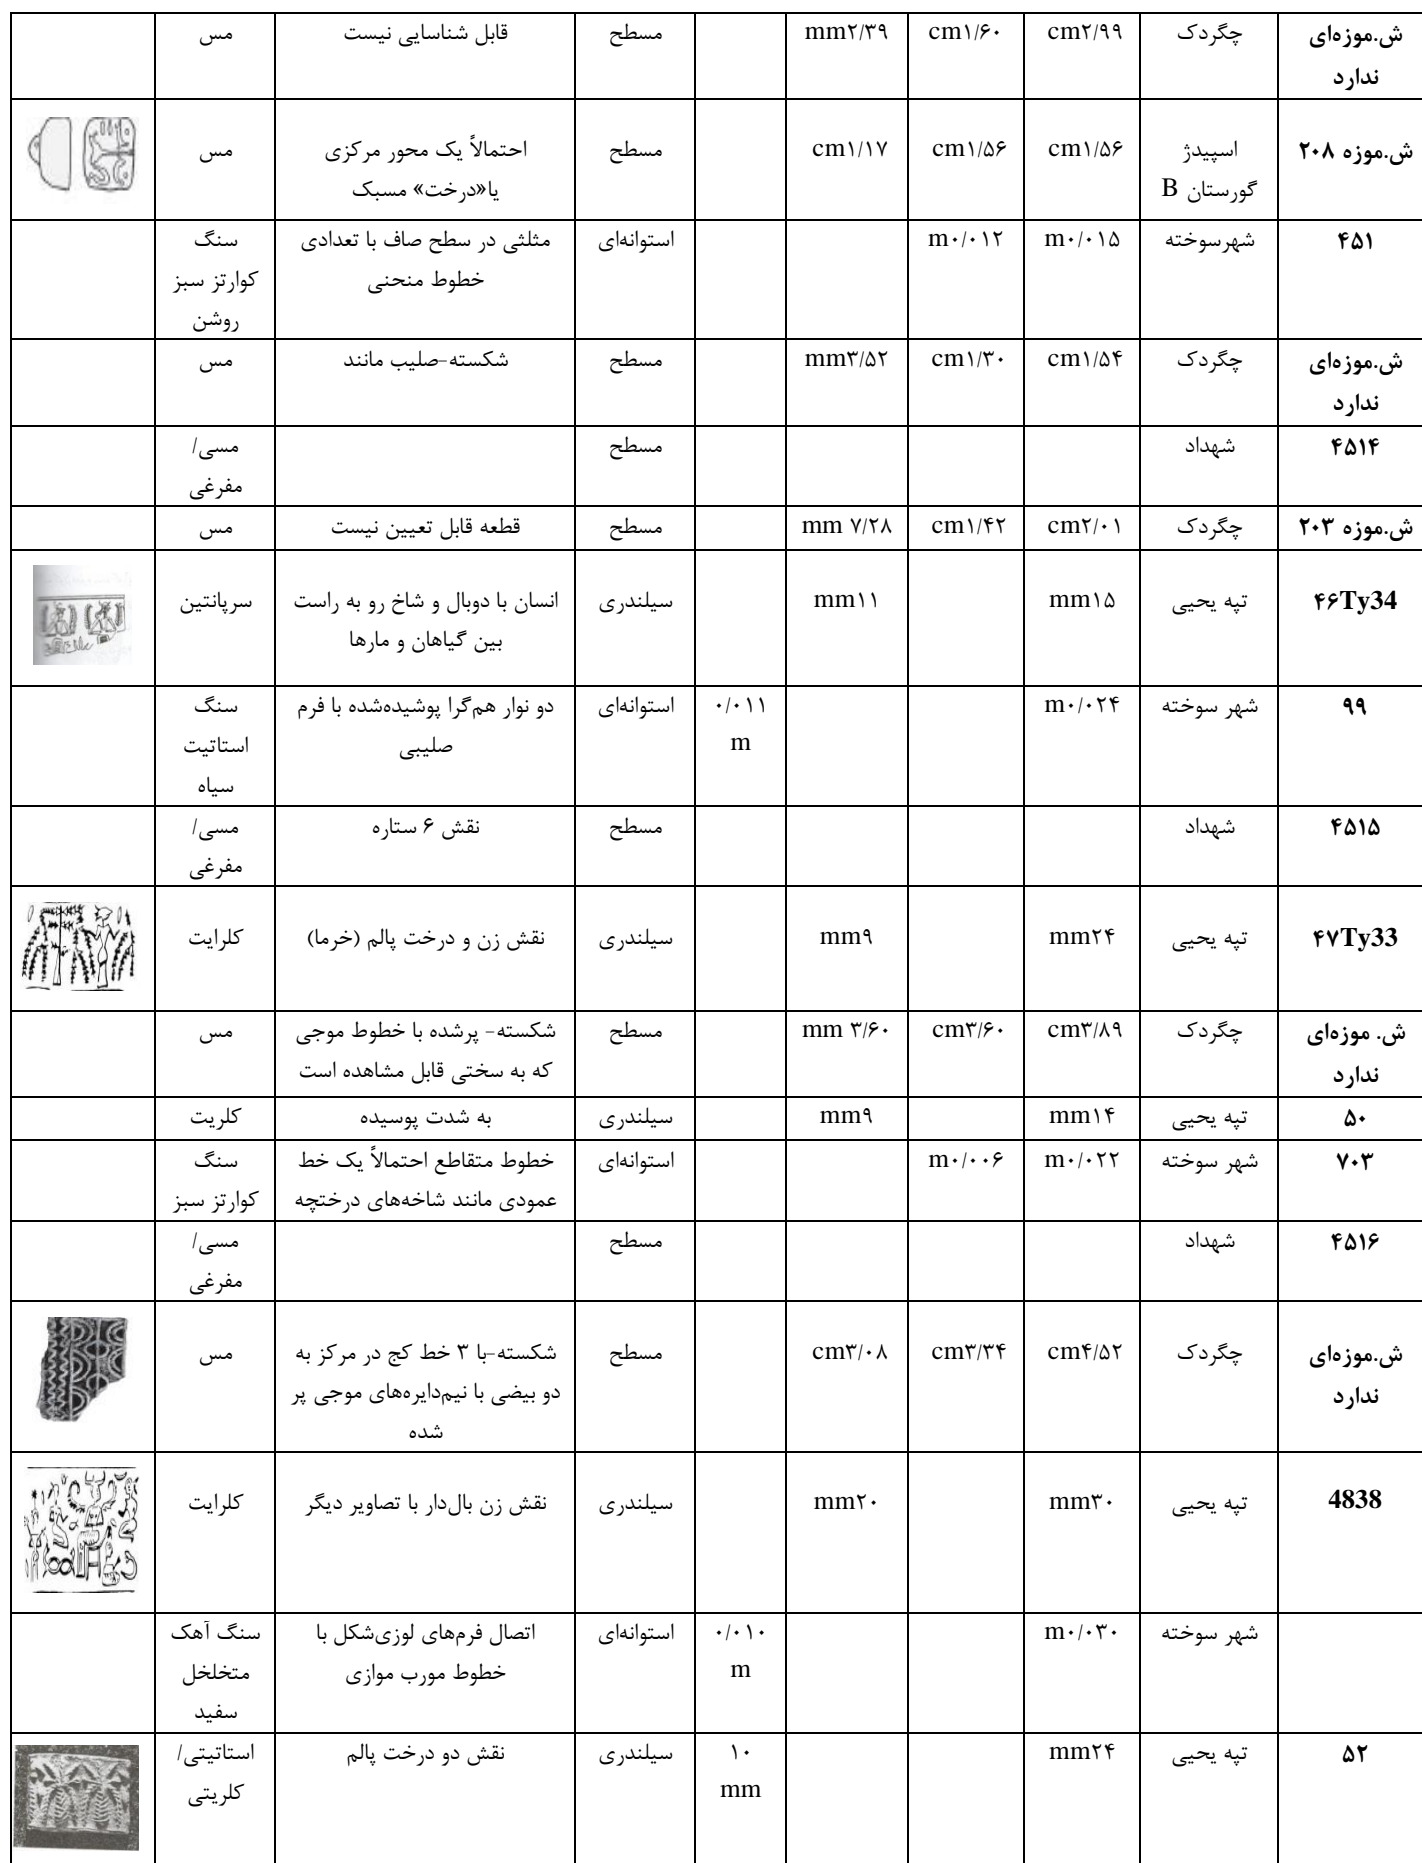 ش.موزه‌ای چگردک cm۲/۹۹ cm۱/۶۰ mm۲/۳۹ مسطح قابل شناسایی نیست مس
ندارد
ش.موزه ۲۰۸ اسپیدژ cm۱/۵۶ cm۱/۵۶ cm۱/۱۷ مسطح احتمالاً یک محور مرکزی مس
گورستان B یا«درخت» مسبک
۴۵۱ شهرسوخته m۰/۰۱۵ m۰/۰۱۲ استوانه‌ای مثلثی در سطح صاف با تعدادی سنگ
خطوط منحنی کوارتز سبز
روشن
ش.موزه‌ای چگردک cm۱/۵۴ cm۱/۳۰ mm۳/۵۲ مسطح شکسته-صلیب مانند مس
ندارد
۴۵۱۴ شهداد مسطح مسی/
مفرغی
ش.موزه ۲۰۳ چگردک cm۲/۰۱ cm۱/۴۲ mm ۷/۲۸ مسطح قطعه قابل تعیین نیست مس
۴۶Ty34 تپه یحیی mm۱۵ mm۱۱ سیلندری انسان با دوبال و شاخ رو به راست سرپانتین
بین گیاهان و مارها
۹۹ شهر سوخته m۰/۰۲۴ ۰/۰۱۱ استوانه‌ای دو نوار هم‌گرا پوشیده‌شده با فرم سنگ
m صلیبی استاتیت
سیاه
۴۵۱۵ شهداد مسطح نقش ۶ ستاره مسی/
مفرغی
۴۷Ty33 تپه یحیی mm۲۴ mm۹ سیلندری نقش زن و درخت پالم (خرما) کلرایت
ش. موزه‌ای چگردک cm۳/۸۹ cm۳/۶۰ mm ۳/۶۰ مسطح شکسته- پرشده با خطوط موجی مس
ندارد که به سختی قابل مشاهده است
۵۰ تپه یحیی mm۱۴ mm۹ سیلندری به شدت پوسیده کلریت
۷۰۳ شهر سوخته m۰/۰۲۲ m۰/۰۰۶ استوانه‌ای خطوط متقاطع احتمالاً یک خط سنگ
عمودی مانند شاخه‌های درختچه کوارتز سبز
۴۵۱۶ شهداد مسطح مسی/
مفرغی
ش.موزه‌ای چگردک cm۴/۵۲ cm۳/۳۴ cm۳/۰۸ مسطح شکسته-با ۳ خط کج در مرکز به مس
ندارد دو بیضی با نیم‌دایره‌های موجی پر
شده
4838 تپه یحیی mm۳۰ mm۲۰ سیلندری نقش زن بال‌دار با تصاویر دیگر کلرایت
شهر سوخته m۰/۰۳۰ ۰/۰۱۰ استوانه‌ای اتصال فرم‌های لوزی‌شکل با سنگ آهک
m خطوط مورب موازی متخلخل
سفید
۵۲ تپه یحیی mm۲۴ ۱۰ سیلندری نقش دو درخت پالم استاتیتی/
mm کلریتی